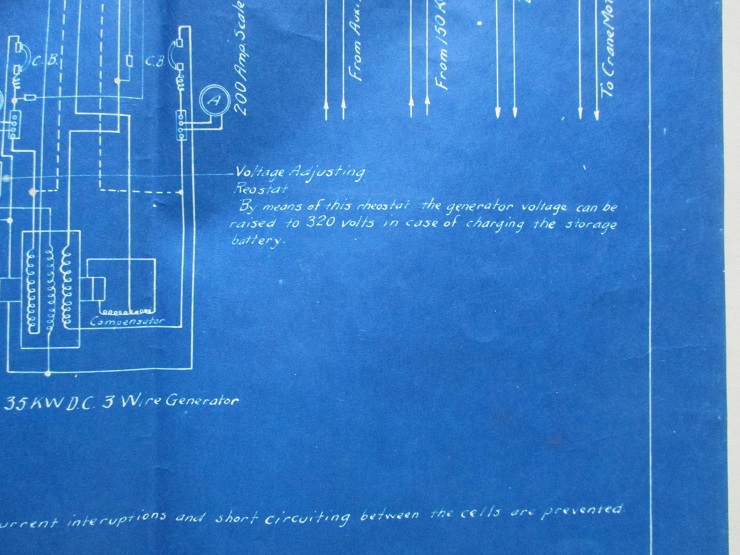 C.B.
C.B.
A
200 Amp. Scale
From Aux.
From 150 K
To Crane Mo
Voltage Adjusting
Reostat
By means of this rheostat the generator voltage can be
raised to 320 volts in case of charging the storage
battery.
Compensator
35 KW D.C. 3 Wire Generator
urrent interuptions and short circuiting between the cells are prevented.